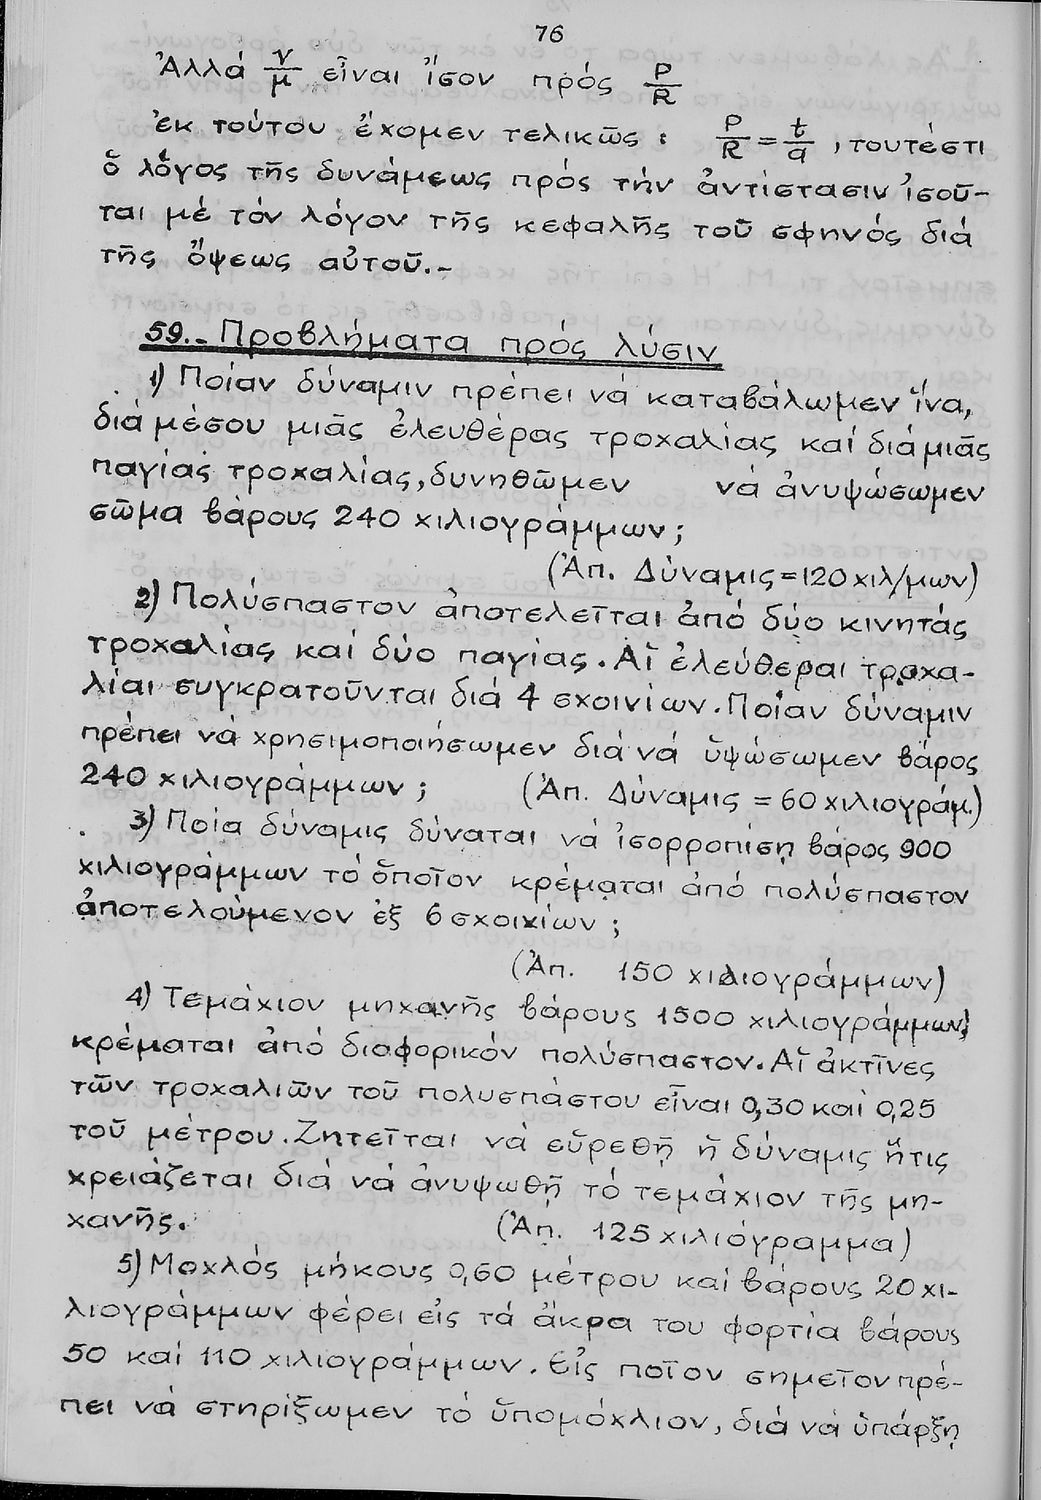 76
Ἀλλά ν/μ εἶναι ἴσον πρός P/R
ἐκ τούτου ἔχομεν τελικῶς : P/R = t/a , τουτέστι
ὁ λόγος τῆς δυνάμεως πρός τήν ἀντίστασιν ἰσοῦ-
ται μέ τόν λόγον τῆς κεφαλῆς τοῦ σφηνός διά
τῆς ὄψεως αὐτοῦ.-
59.- Προβλήματα πρός λύσιν
1) Ποίαν δύναμιν πρέπει νά καταβάλωμεν ἵνα,
διά μέσου μιᾶς ἐλευθέρας τροχαλίας καί διά μιᾶς
παγίας τροχαλίας, δυνηθῶμεν νά ἀνυψώσωμεν
σῶμα βάρους 240 χιλιογράμμων ;
(Ἀπ. Δύναμις = 120 χιλ/μων)
2) Πολύσπαστον ἀποτελεῖται ἀπό δύο κινητάς
τροχαλίας καί δύο παγίας. Αἵ ἐλεύθεραι τροχα-
λίαι συγκρατοῦνται διά 4 σχοινίων. Ποίαν δύναμιν
πρέπει νά χρησιμοποιήσωμεν διά νά ὑψώσωμεν βάρος
240 χιλιογράμμων ; (Ἀπ. Δύναμις = 60 χιλιογράμ.)
3) Ποία δύναμις δύναται νά ἰσορροπίσῃ βάρος 900
χιλιογράμμων τό ὁποῖον κρέμαται ἀπό πολύσπαστον
ἀποτελούμενον ἐξ 6 σχοινίων ;
(Ἀπ. 150 χιλιογράμμων)
4) Τεμάχιον μηχανῆς βάρους 1500 χιλιογράμμων,
κρέμαται ἀπό διαφορικόν πολύσπαστον. Αἵ ἀκτῖνες
τῶν τροχαλιῶν τοῦ πολυσπάστου εἶναι 0,30 καί 0,25
τοῦ μέτρου. Ζητεῖται νά εὑρεθῇ ἡ δύναμις ἥτις
χρειάζεται διά νά ἀνυψωθῇ τό τεμάχιον τῆς μη-
χανῆς. (Ἀπ. 125 χιλιόγραμμα)
5) Μοχλός μήκους 0,60 μέτρου καί βάρους 20 χι-
λιογράμμων φέρει εἰς τά ἄκρα του φορτία βάρους
50 καί 110 χιλιογράμμων. Εἰς ποῖον σημεῖον πρέ-
πει νά στηρίξωμεν τό ὑπομόχλιον, διά νά ὑπάρξῃ